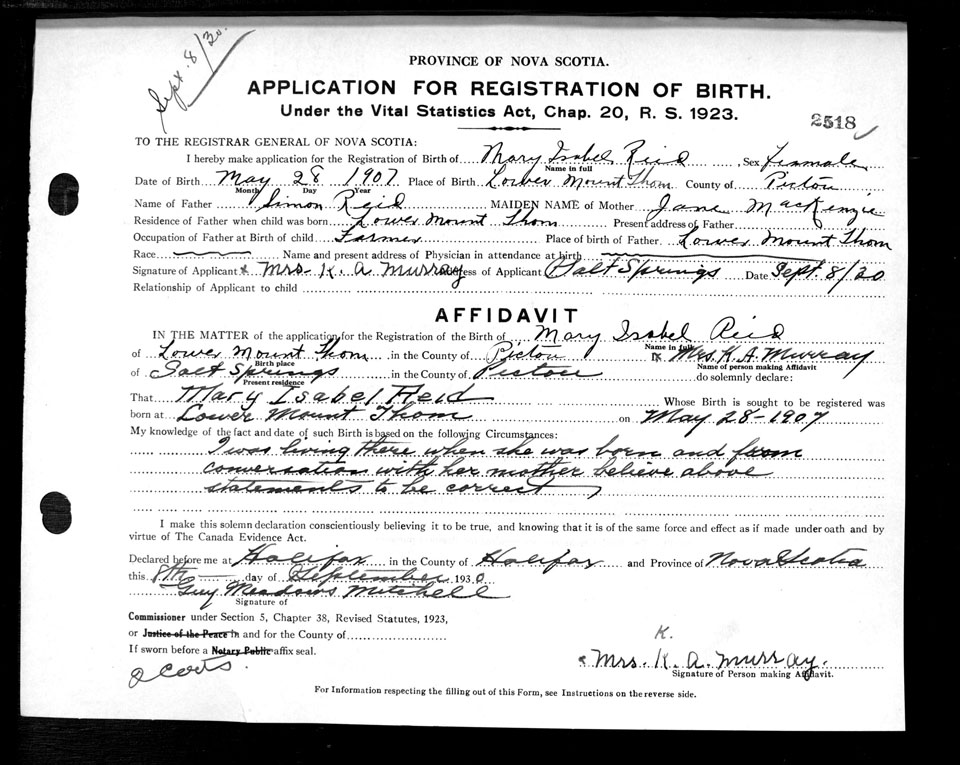 Sept. 8/30.
PROVINCE OF NOVA SCOTIA.
APPLICATION FOR REGISTRATION OF BIRTH.
Under the Vital Statistics Act, Chap. 20, R. S. 1923.
2518
TO THE REGISTRAR GENERAL OF NOVA SCOTIA:
I hereby make application for the Registration of Birth of Mary Isabel Reid, Sex Female
Name in full
Date of Birth May 28 1907 Place of Birth Lower Mount Thom County of Pictou
Month Day Year
Name of Father Simon Reid MAIDEN NAME of Mother Jane MacKenzie
Residence of Father when child was born Lower Mount Thom Present address of Father
Occupation of Father at Birth of child Farmer Place of birth of Father Lower Mount Thom
Race Name and present address of Physician in attendance at birth
Signature of Applicant Mrs. K. A. Murray Address of Applicant Salt Springs Date Sept. 8/30
Relationship of Applicant to child
AFFIDAVIT
IN THE MATTER of the application for the Registration of the Birth of Mary Isabel Reid
Name in full
of Lower Mount Thom in the County of Pictou I, Mrs. K. A. Murray
Birth place Name of person making Affidavit
of Salt Springs in the County of Pictou do solemnly declare:
Present residence
That Mary Isabel Reid Whose Birth is sought to be registered was
born at Lower Mount Thom on May 28-1907
My knowledge of the fact and date of such Birth is based on the following Circumstances:
I was living there when she was born and from
conversation with her mother believe above
statements to be correct
I make this solemn declaration conscientiously believing it to be true, and knowing that it is of the same force and effect as if made under oath and by
virtue of The Canada Evidence Act.
Declared before me at Halifax in the County of Halifax and Province of Nova Scotia
this 8th day of September 1930
Guy Meadows Mitchell
Signature of
Commissioner under Section 5, Chapter 38, Revised Statutes, 1923,
or Justice of the Peace in and for the County of
If sworn before a Notary Public affix seal.
K.
Mrs. K. A. Murray.
Signature of Person making Affidavit.
For Information respecting the filling out of this Form, see Instructions on the reverse side.